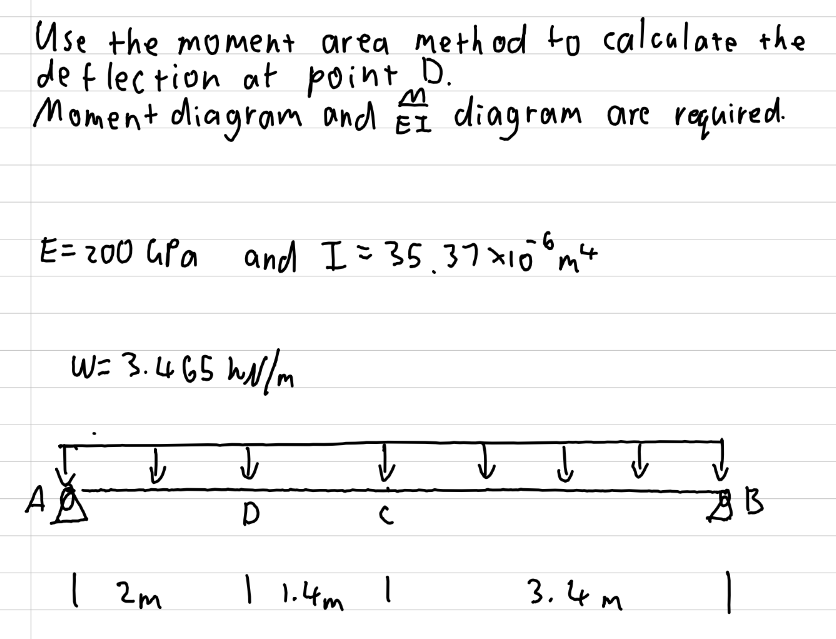 Use the moment area method to calculate the
deflection at point D.
Moment diagram and M/EI diagram are required.
E=200 GPa and I = 35.37×10⁻⁶ m⁴
W= 3.465 kN/m
A D C B
2m 1.4m 3.4 m